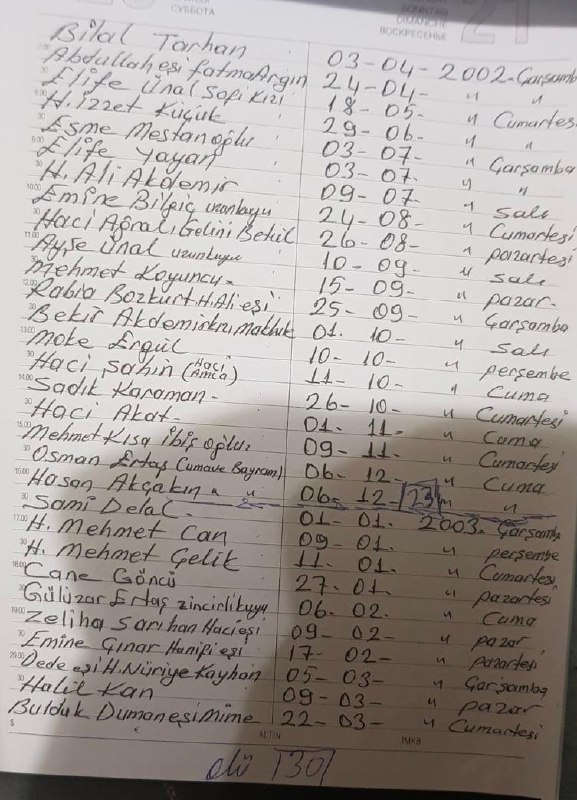 СУББОТА
SONNTAG
DIMANCHE
ВОСКРЕСЕНЬЕ
21
Bilal Tarhan 03-04-2002-Çarşamba
Abdullah eşi fatma Argın 24-04- " "
Elife Ünal Sofi Kızı 18-05- " Cumartesi
H. İzzet Küçük 29-06- " "
Esme Mestanoğlu 03-07- " Çarşamba
Elife Yayan 03-07- " "
H. Ali Akdemir 09-07 " Salı
Emine Bilgiç uzunkuyu 24-08- " Cumartesi
Haci Ağralı Gelini Betül 26-08- " pazartesi
Ayşe Ünal uzunkuyu 10-09- " Salı
Mehmet Koyuncu- 15-09- " pazar-
Rabia Bozkurt H. Ali eşi 25-09- " Çarşamba
Bekir Akdemir kızı 01. 10- " Salı
Moke Ergül 10-10- " perşembe
Haci Şahin (Haci Amca) 11-10- " Cuma
Sadık Karaman- 26-10- " Cumartesi
Haci Akat- 01-11- " Cuma
Mehmet Kısa ibiş oğlu 09-11- " Cumartesi
Osman Ertaş (Cuma ve Bayram) 06-12- " Cuma
Hasan Akçakın " " 06-12- 23 " "
Sami Delal- 01-01. 2003-Çarşamba
H. Mehmet Can 09-01. " perşembe
H. Mehmet Çelik 11-01. " Cumartesi
Cane Göncü 27-01. " pazartesi
Gülüzar Ertaş zincirlikuyu 06-02. " Cuma
Zeliha Sarıhan Haci eşi 09-02- " pazar
Emine Çınar Hanifi eşi 17-02- " pazartesi
Dede eşi H. Nüriye Kayhan 05-03- " Çarşamba
Halil Kan 09-03- " pazar
Bulduk Duman eşi Mime 22-03- " Cumartesi
$ € ALTIN İMKB
ölü 130